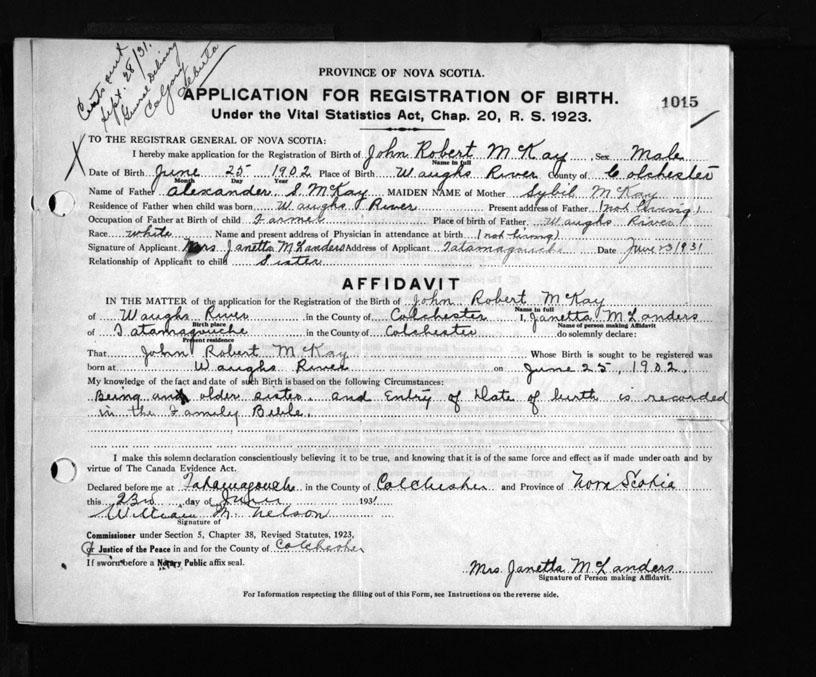 Cert sent
Sept. 28/31.
General Delivery
Calgary
Alberta
PROVINCE OF NOVA SCOTIA.
APPLICATION FOR REGISTRATION OF BIRTH.
1015
Under the Vital Statistics Act, Chap. 20, R. S. 1923.
X TO THE REGISTRAR GENERAL OF NOVA SCOTIA:
I hereby make application for the Registration of Birth of John Robert McKay Sex Male
Name in full
Date of Birth June 25 1902 Place of Birth Waughs River County of Colchester
Month Day Year
Name of Father Alexander S. McKay MAIDEN NAME of Mother Sybil McKay
Residence of Father when child was born Waughs River Present address of Father (not living)
Occupation of Father at Birth of child Farmer Place of birth of Father Waughs River
Race white Name and present address of Physician in attendance at birth (not living)
Signature of Applicant Mrs. Janetta McLanders Address of Applicant Tatamagouche Date June 23/1931
Relationship of Applicant to child Sister
AFFIDAVIT
IN THE MATTER of the application for the Registration of the Birth of John Robert McKay
Name in full
of Waughs River in the County of Colchester I, Janetta McLanders
Birth place Name of person making Affidavit
of Tatamagouche in the County of Colchester do solemnly declare:
Present residence
That John Robert McKay Whose Birth is sought to be registered was
born at Waughs River on June 25, 1902.
My knowledge of the fact and date of such Birth is based on the following Circumstances:
Being an older sister. and Entry of Date of birth is recorded
in the Family Bible.
I make this solemn declaration conscientiously believing it to be true, and knowing that it is of the same force and effect as if made under oath and by
virtue of The Canada Evidence Act.
Declared before me at Tatamagouch in the County of Colchester and Province of Nova Scotia
this 23rd day of June 1931
William M. Nelson
Signature of
Commissioner under Section 5, Chapter 38, Revised Statutes, 1923,
or Justice of the Peace in and for the County of Colchester
If sworn before a Notary Public affix seal.
Mrs. Janetta McLanders
Signature of Person making Affidavit.
For Information respecting the filling out of this Form, see Instructions on the reverse side.